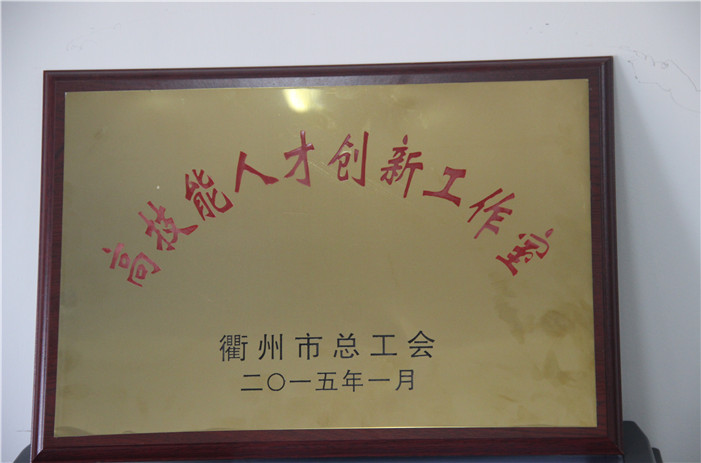 高技能人才创新工作室
衢州市总工会
二〇一五年一月